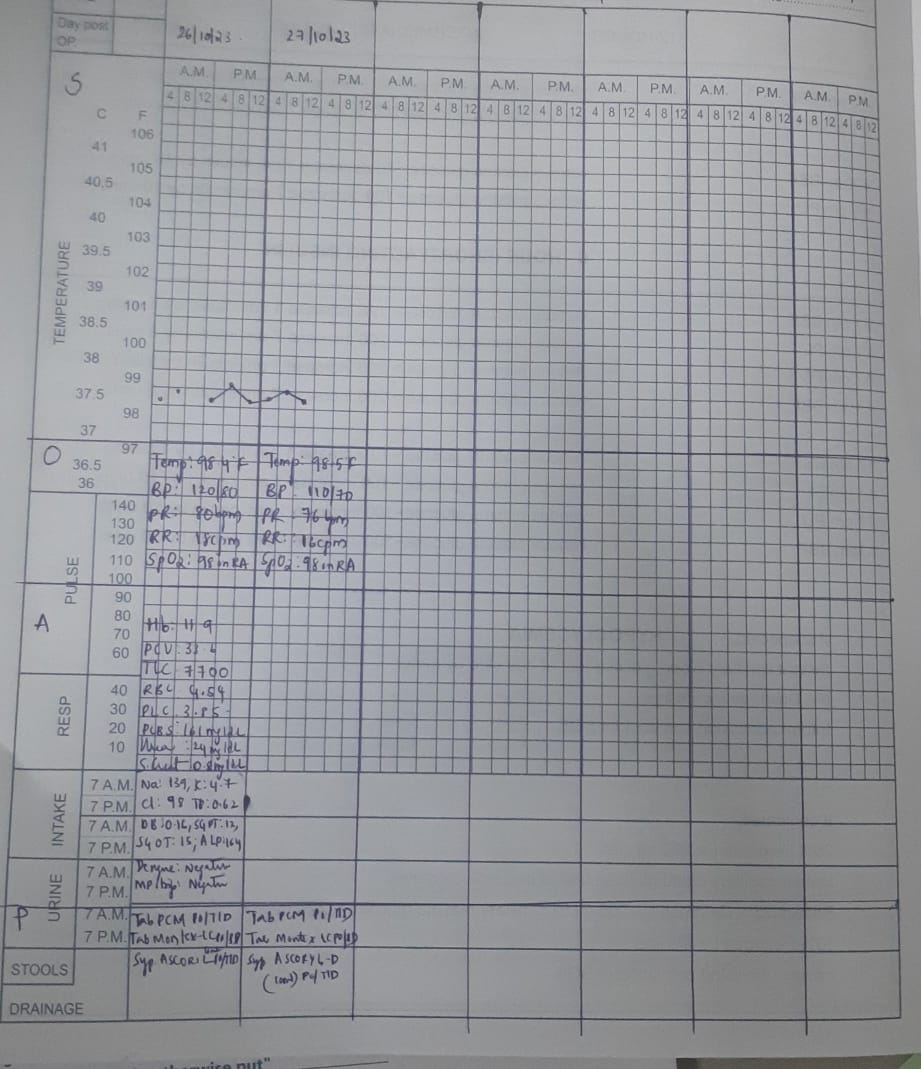 Day post
OP
26/10/23 27/10/23
S
A.M. P.M. A.M. P.M. A.M. P.M. A.M. P.M. A.M. P.M. A.M. P.M. A.M. P.M.
4 8 12 4 8 12 4 8 12 4 8 12 4 8 12 4 8 12 4 8 12 4 8 12 4 8 12 4 8 12 4 8 12 4 8 12 4 8 12 4 8 12
C F
106
41
105
40,5
104
40
103
39.5
102
39
101
38.5
100
38
99
37.5
98
37
97
TEMPERATURE
O
36.5
36
Temp: 98.4°F Temp: 98.5 F
BP: 120/80 BP: 110/70
PR: 80bpm PR: 76 bpm
RR: 18cpm RR: 16cpm
SpO2: 98 in RA SpO2: 98 in RA
PULSE
140
130
120
110
100
90
80
70
60
A
Hb: 11.9
PCV: 33.
TLC 7700
RBC 4.54
PLC 3.85
161 mg/dL
Urea: 24 mg/dL
S. 0.8mg/dL
RESP
40
30
20
10
INTAKE
7 A.M. Na: 139, K: 4.7
7 P.M. Cl: 98 TB: 0.62
7 A.M. DB: 0.16, SGPT: 12,
7 P.M. SGOT: 15, ALP: 164
URINE
7 A.M. Dengue: Negative
7 P.M. MP Negative
P
7 A.M. Tab PCM PO/TID Tab PCM PO/TID
7 P.M. Tab LC PO/ Tab Montex LC PO/
STOOLS
Syp ASCORIL PO/TID Syp ASCORYL-D
PO/TID
DRAINAGE